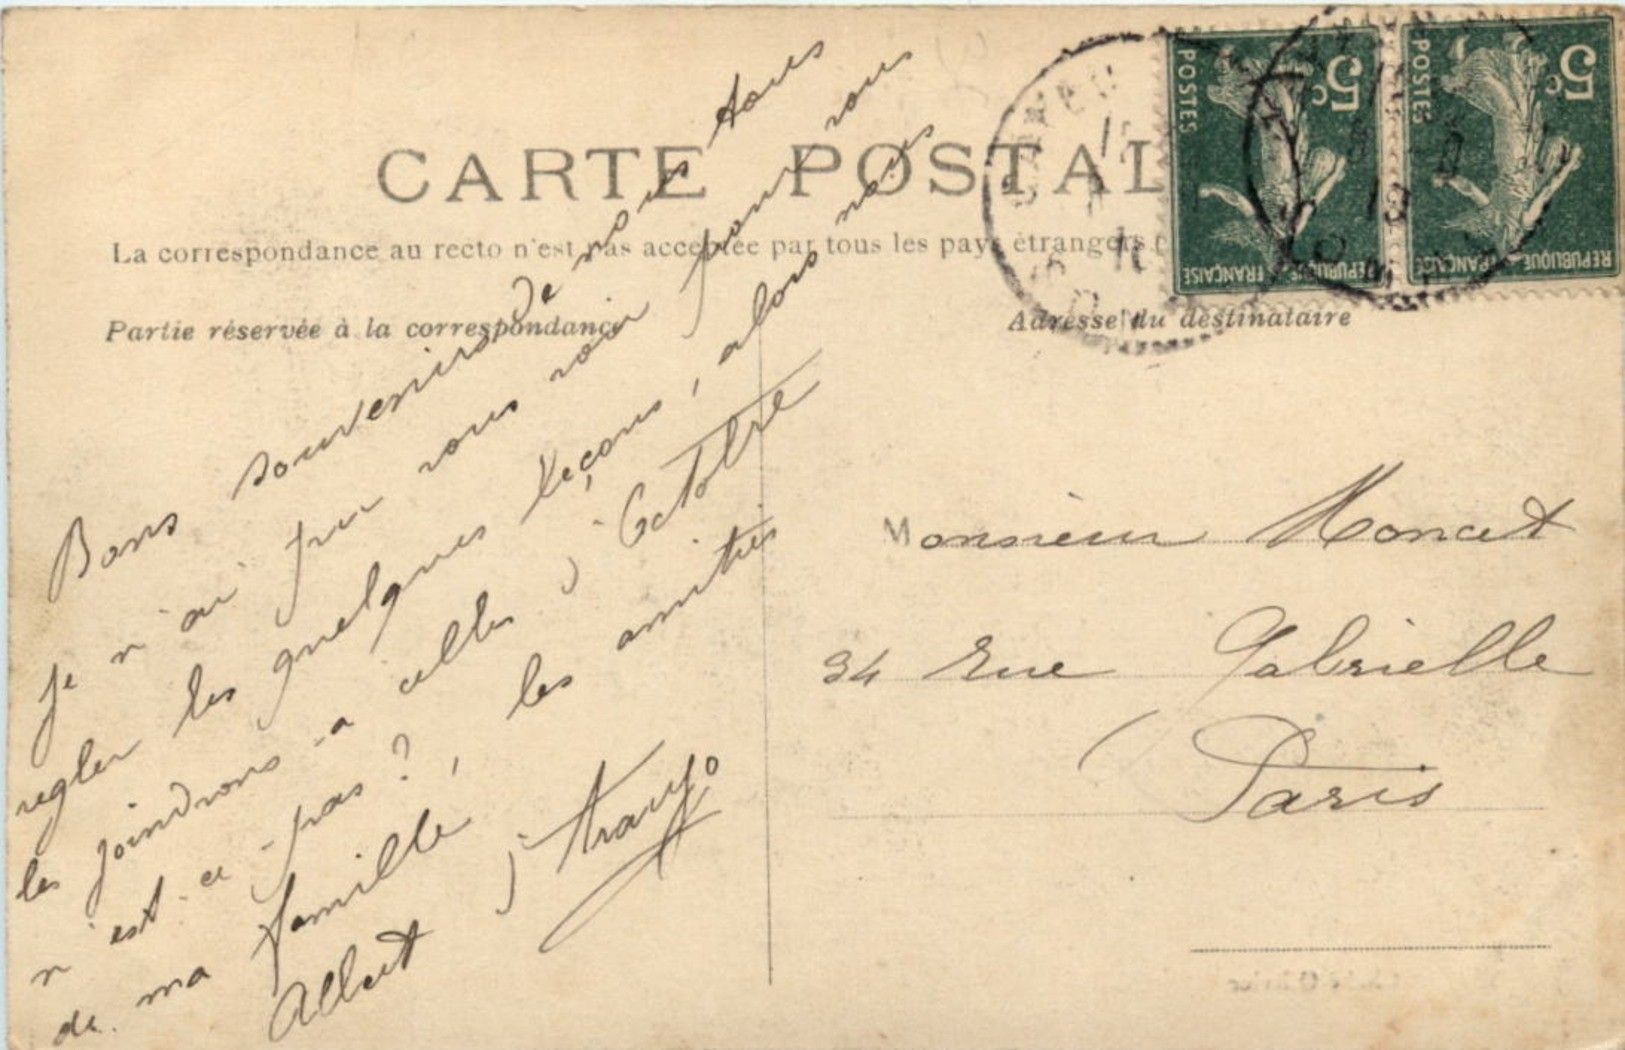 CARTE POSTAL
La correspondance au recto n'est pas acceptée par tous les pays étrangers
Partie réservée à la correspondance
Adresse du destinataire
Bons souvenirs de nous tous
Je n'ai pu vous voir pour vous
regler les quelques leçons, alors nous
les joindrons à celles d'Octobre
n'est-ce-pas? les amitiés
de ma famille,
Albert
Monsieur Moncet
34 Rue Gabrielle
Paris
POSTES
5c
REPUBLIQUE FRANÇAISE
POSTES
5c
REPUBLIQUE FRANÇAISE